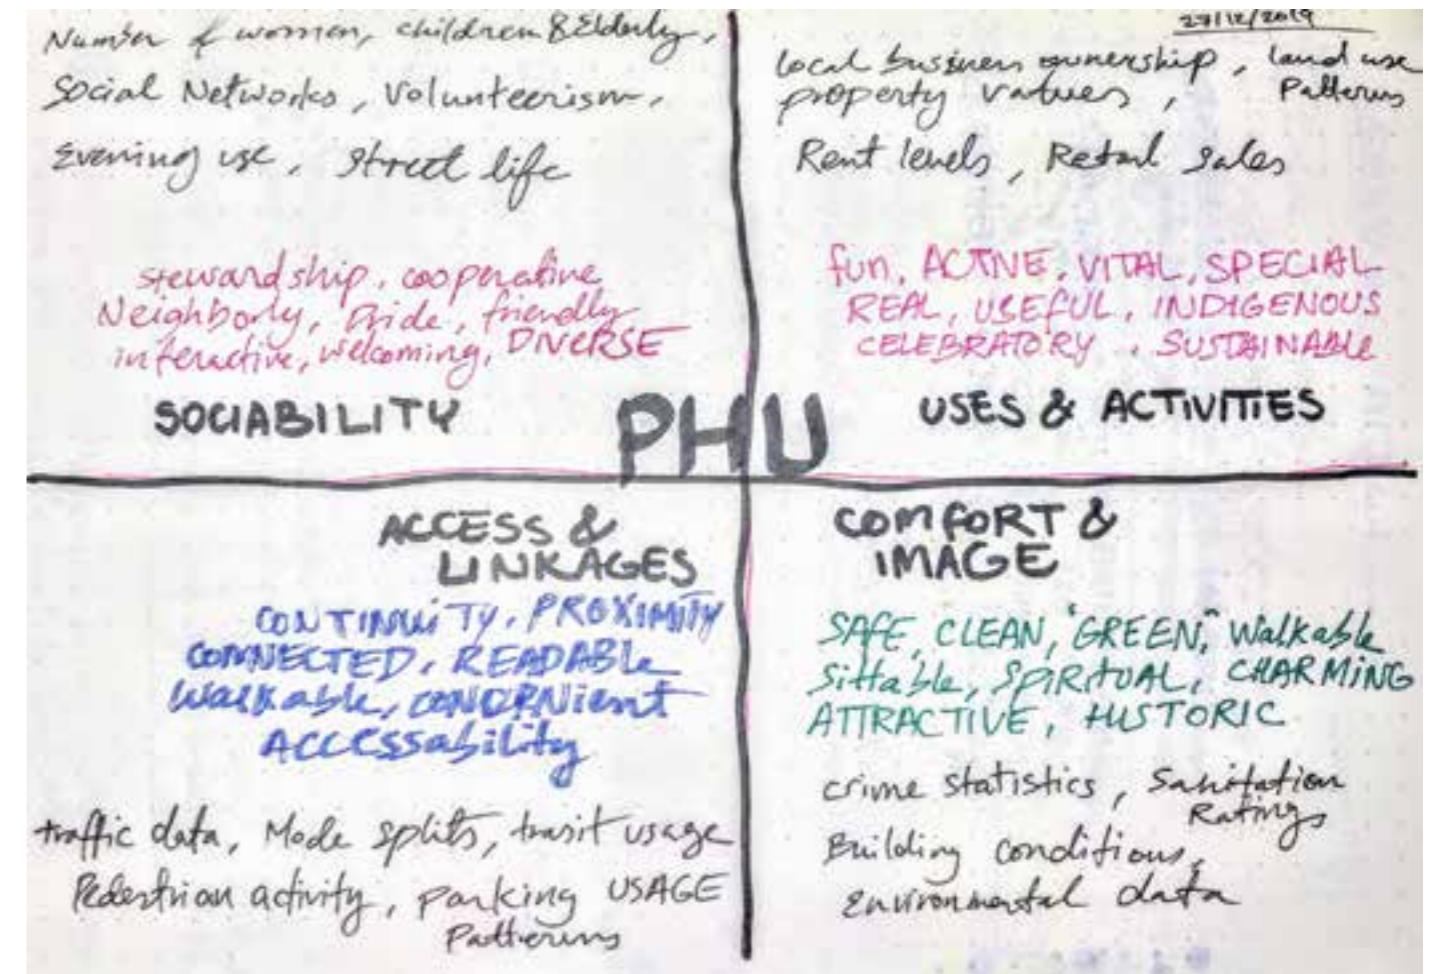 27/12/2019
Number of women, children & Elderly,
Social Networks, Volunteerism,
Evening use, Street life
stewardship, cooperative
Neighborly, Pride, friendly
interactive, welcoming, DIVERSE
SOCIABILITY
local business ownership, land use
property values, Patterns
Rent levels, Retail sales
fun, ACTIVE, VITAL, SPECIAL
REAL, USEFUL, INDIGENOUS
CELEBRATORY, SUSTAINABLE
USES & ACTIVITIES
PHU
ACCESS &
LINKAGES
CONTINUITY, PROXIMITY
CONNECTED, READABLE
Walkable, CONVENient
ACCESSability
traffic data, Mode splits, transit usage
Pedestrian activity, parking USAGE
Patterns
COMFORT &
IMAGE
SAFE, CLEAN, "GREEN," Walkable
Sittable, SPIRITUAL, CHARMING
ATTRACTIVE, HISTORIC
crime statistics, Sanitation
Ratings
Building conditions,
Environmental data